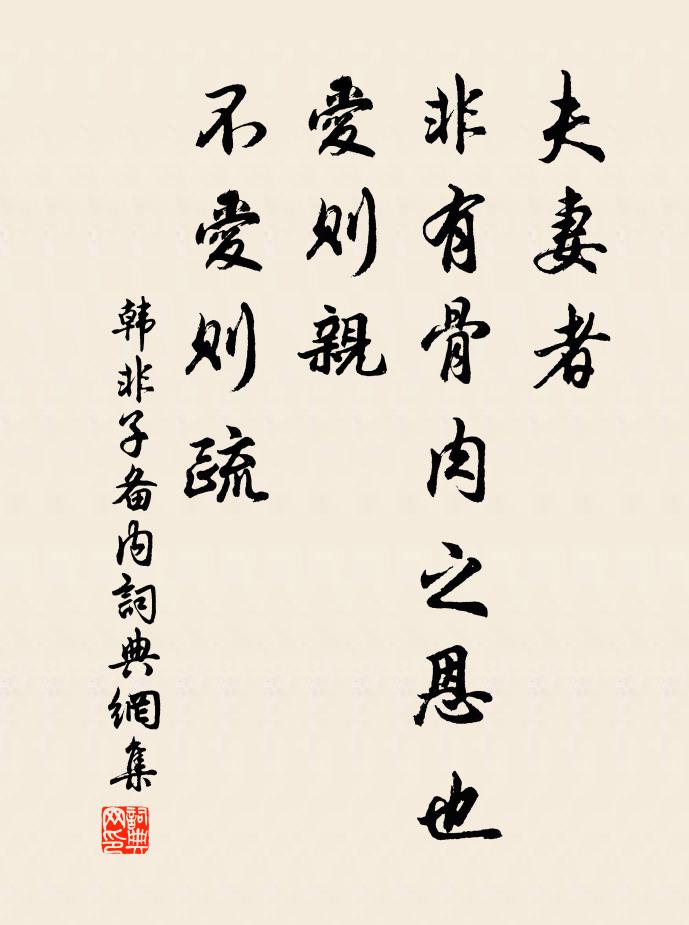 夫妻者
非有骨肉之恩也
愛則親
不愛則疏
韩非子备内詞典網集
詞典
网印